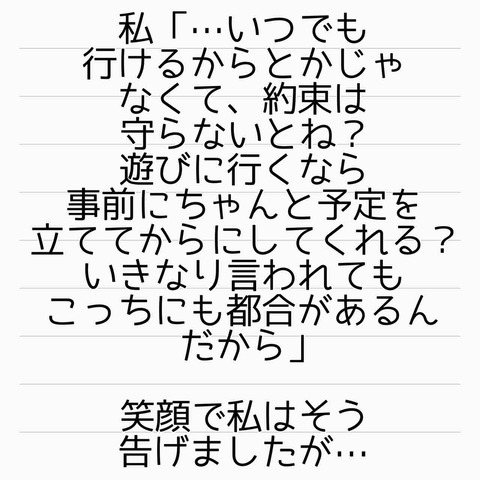 私「…いつでも
行けるからとかじゃ
なくて、約束は
守らないとね？
遊びに行くなら
事前にちゃんと予定を
立ててからにしてくれる？
いきなり言われても
こっちにも都合があるん
だから」
笑顔で私はそう
告げましたが…